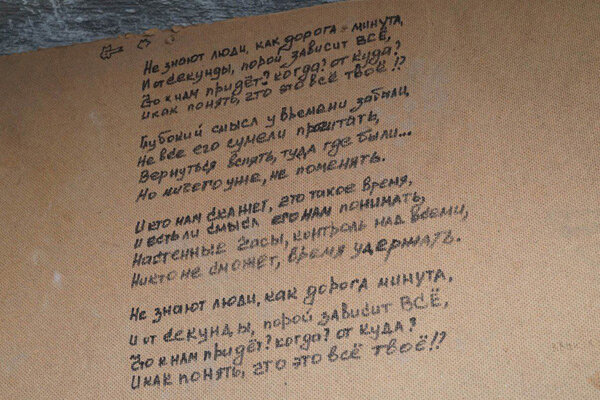 Не знают люди, как дорога минута,
И от секунды, порой зависит ВСЁ,
Что к нам придёт? когда? от куда?
и как понять, что это всё твоё!?
Глубокий смысл у времени забыли,
Не все его сумели прочитать,
Вернуться вспять, туда где были...
Но ничего уже, не поменять.
И кто нам скажет, что такое время,
и есть ли смысл его нам понимать,
Настенные часы, контроль над всеми,
Никто не сможет, время удержать.
Не знают люди, как дорога минута,
и от секунды, порой зависит ВСЁ,
Что к нам придёт? когда? от куда?
И как понять, что это всё твоё!?